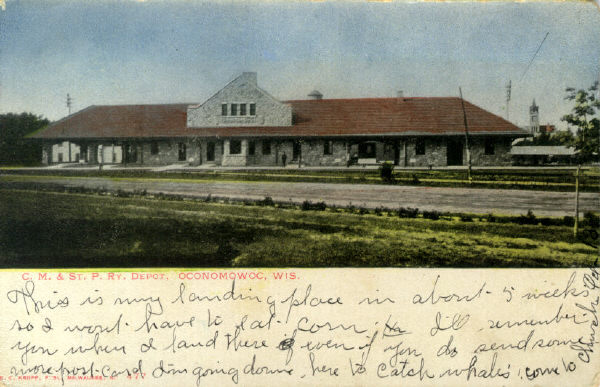 C. M. & ST. P. RY. DEPOT, OCONOMOWOC, WIS.
This is my landing place in about 5 weeks
so I wont have to eat corn. I'll remember
you when I land there & even if you do send some
more post-card Im going down here to catch whales, come to
Church
E. C. KROPP, PUB., MILWAUKEE